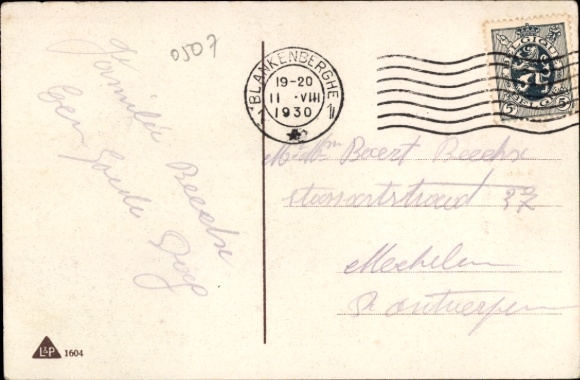 0507
Familie Beeckx
Een Goede Dag
BLANKENBERGHE
19-20
11 -VIII
1930
1
BELGIQUE
BELGIË
5 5
Mr & Mme Boert Beeckx
37
Mechelen
Pr Antwerpen
L&P 1604